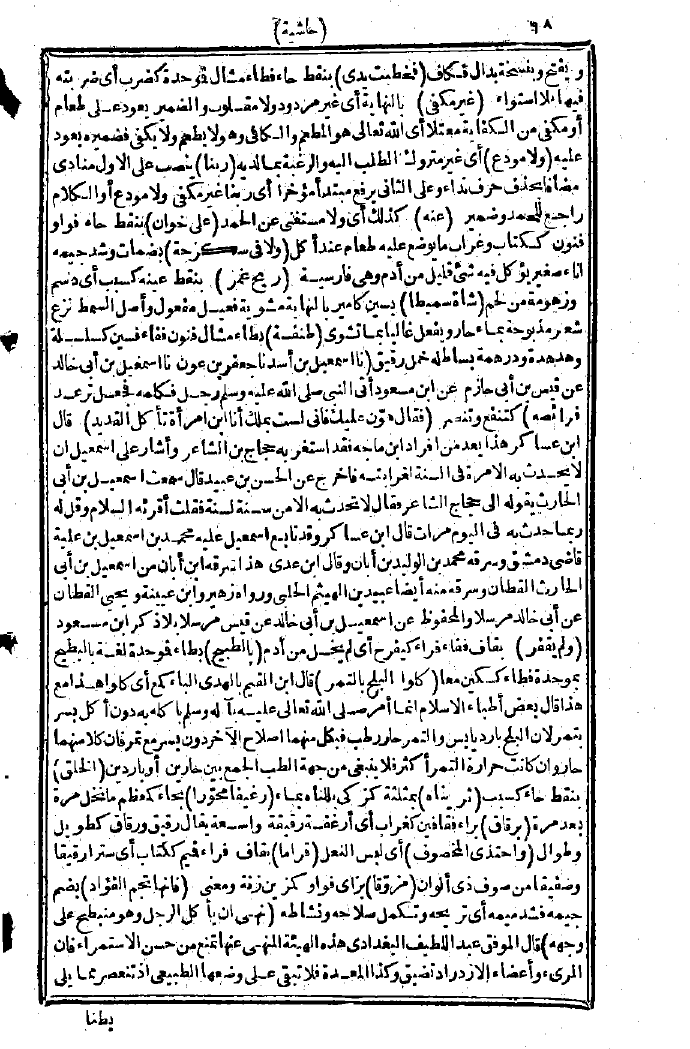 ٩٨
(حاشية)
ويفتح وبفسخة بدال فكاف (فخطبت يدى) بنقط حاء فطاء مثال فوحدة كضرب أى ضربته
فيها بلا استواء (غير مكفى) بالنهاية أى غير مردود ولا مقلوب والضمير يعود على طعام
أو مكفى من الكفاية معتلا أى الله تعالى هو المطعم والكافى وهو لا يطعم ولا يكفى فضميره يعود
عليه (ولا مودع) أى غير متروك الطلب اليه والرغبة بما لديه (ربنا) ينصب على الاول منادى
مضافا بحذف حرف نداء وعلى الثانى يرفع مبتدأ مؤخرا أى ربنا غير مكفى ولا مودع أو الكلام
راجع للحمد وضمير (عنه) كذلك أى ولا مستغنى عن الحمد (على خوان) بنقط حاء فواو
فنون ككتاب وغراب ما توضع عليه طعام عند أكل (ولا فى سكرجة) بضمات وشد جيمه
اناء صغير يؤكل فيه شئ قليل من أدم وهى فارسية (ريح غمر) بنقط عينه كسبب أى دسم
وزهومة من لحم (شاة سميطا) بسين كامير بالنهاية مشوية فعيل مفعول وأصل السمط نزع
شعر مذبوحة بماء حار ويفعل غالبا بما تشوى (طنفسة) بطاء مثال فنون ففاء فسين كسلسلة
وهدهدة ودرهمة بساط له خمل رقيق (نا اسمعيل بن أسد نا جعفر بن عون نا اسمعيل بن أبى خالد
عن قيس بن أبى حازم عن ابن مسعود أتى النبى صلى الله عليه وسلم رجل فكلمه فجعل ترعد
فرائصه) كتنفع وتنصر (فقال هون عليك فانى لست بملك أنا ابن امرأة تأكل القديد) قال
ابن عساكر هذا يعد من افراد ابن ماجه فقد استغربه حجاج بن الشاعر وأشار على اسمعيل ان
لا يحدث به الامرة فى السنة لغرابته فاخرج عن الحسن بن عبيد قال سمعت اسمعيل بن أبى
الحارث يقول الى حجاج الشاعر فقال لا تحدث به الا من سنة لسنة فقلت أقرئه السلام وقل له
ربما حدث به فى اليوم مرات قال ابن عساكر وقد تابع اسمعيل عليه محمد بن اسمعيل بن علية
قاضى دمشق وسرقه محمد بن الوليد بن أبان وقال ابن عدى هذا سرقه ابن أبان من اسمعيل بن أبى
الحارث القطان وسرقه منه أيضا عبيد بن الهيثم الحلبى ورواه زهير وابن عيينة و يحيى القطان
عن أبى خالد مرسلا والمحفوظ عن اسمعيل بن أبى خالد عن قيس مرسلا بلا ذكر ابن مسعود
(ولم يقفر) بقاف ففاء فراء كيفرح أى لم يخل من أدم (بالطبيخ) بطاء فوحدة لغة بالبطيخ
بموحدة فطاء كسكين معا (كلوا البلح بالتمر) قال ابن القيم بالهدى الباء كمع أى كلوا هذا مع
هذا قال بعض أطباء الاسلام انما أمر صلى الله تعالى عليه بآله وسلم باكله به دون أكل بسر
بتمر لان البلح بارد يابس والتمر حار رطب فبكل منهما اصلاح الآخر دون بسر مع تمر فان كلا منهما
حار وان كانت حرارة التمر أكثر فلا ينبغى من جهة الطب الجمع بين حارين أو باردين (الخلق)
بنقط حاء كسبب (ثريناه) بمثلثة كزكى بللناه بماء (رغيفا محورا) بحاء كمعظم ما نخل مرة
بعد مرة (برقاق) براء بقافين كغراب أى أرغفة رقيقة واسعة يقال رقيق ورقاق كطويل
وطوال (واحتذى المخصوف) أى لبس النعل (قراما) بقاف فراء فيم ككتاب أى سترا رقيقا
وصفيقا من صوف ذى ألوان (مزوقا) بزاى فواو كزين زنة ومعنى (فانها تجم الفؤاد) بضم
جيمه فشد ميمه أى تريحه وتكمل صلاحه ونشاطه (نهى ان يأكل الرجل وهو منبطح على
وجهه) قال الموفق عبد اللطيف البغدادى هذه الهيئة المنهى عنها تمنع من حسن الاستمراء فان
المرىء وأعضاء الازدراد تضيق وكذا المعدة فلا تبقى على وضعها الطبيعى اذ تنعصر مما يلى
بطنا